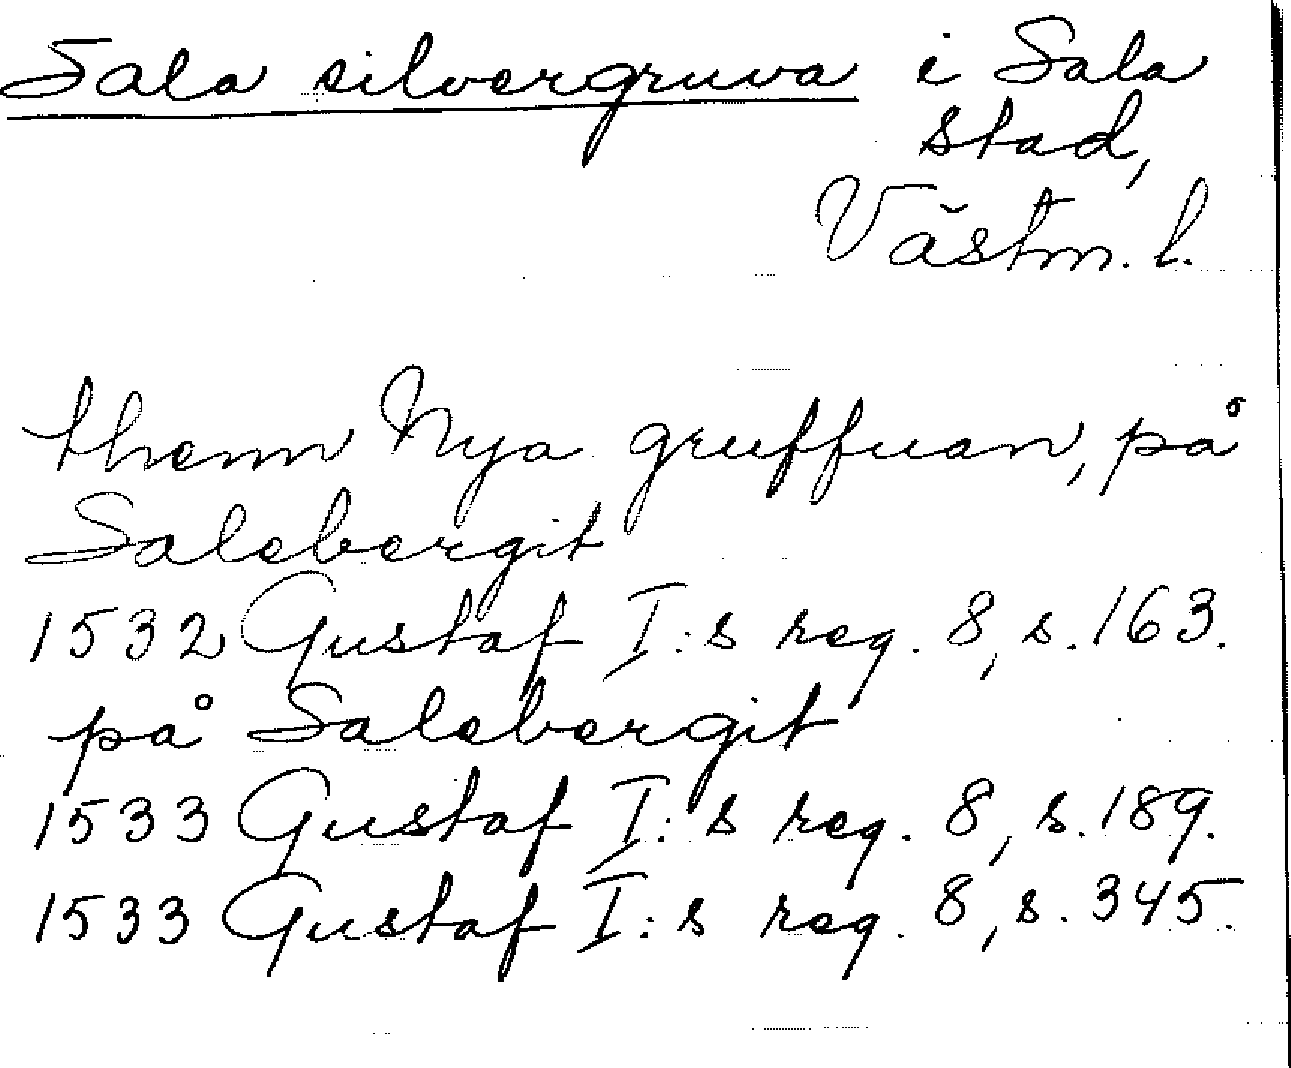 Sala silvergruva i Sala
stad,
Västm. l.
thenn Nya gruffuan, på
Salebergit
1532 Gustaf I:s reg. 8, s. 163.
på Salebergit
1533 Gustaf I:s reg. 8, s. 189.
1533 Gustaf I:s reg. 8, s. 345.